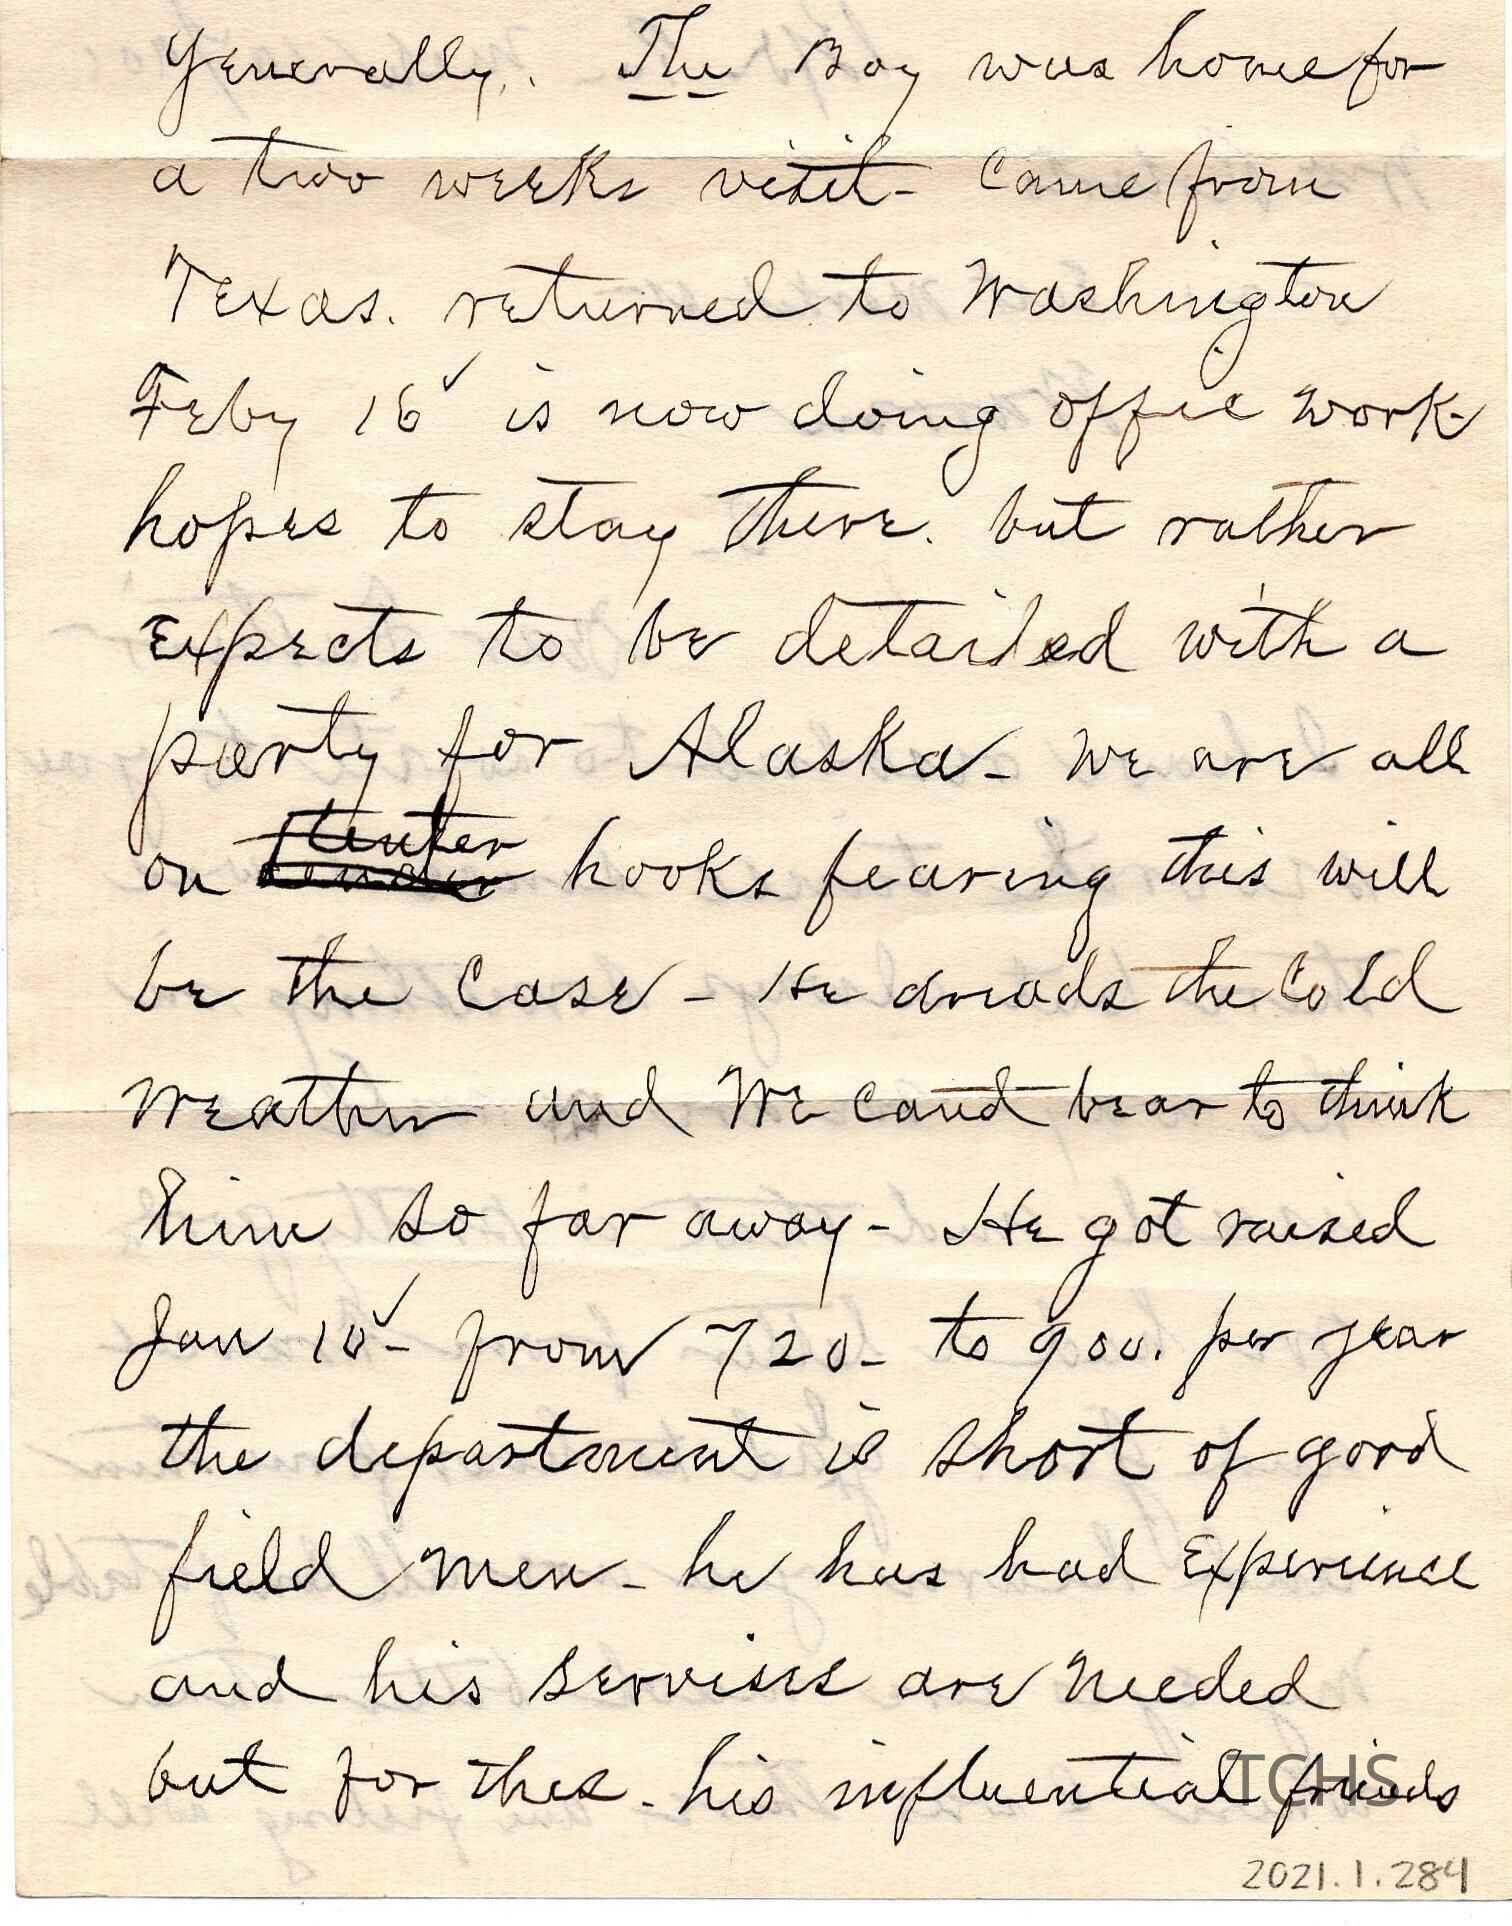 Generally. The Boy was home for
a two weeks visit - Came from
Texas. returned to Washington
Feby 16 is now doing office work
hopes to stay there. but rather
Expects to be detailed with a
party for Alaska - We are all
on tenter hooks fearing this will
be the Case - He dreads the Cold
Weather and We cand bear to think
him so far away - He got raised
Jan 10 - from 720 - to 900. per year
the department is short of good
field men - he has had Experience
and his servises are needed
but for this - his influential friends
TCHS
2021.1.284